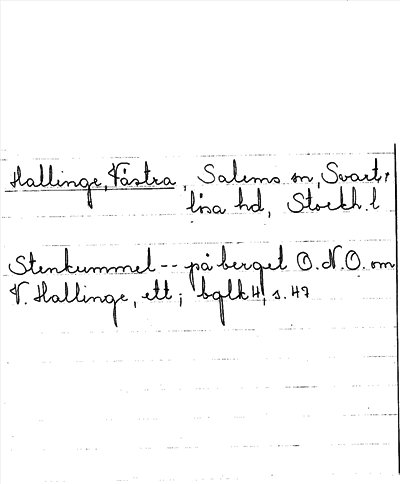 Hallinge, Västra, Salems sn, Svart-
lösa hd, Stockh. l
Stenkummel -- på berget O.N.O. om
V. Hallinge, ett; bglk 4, s. 47